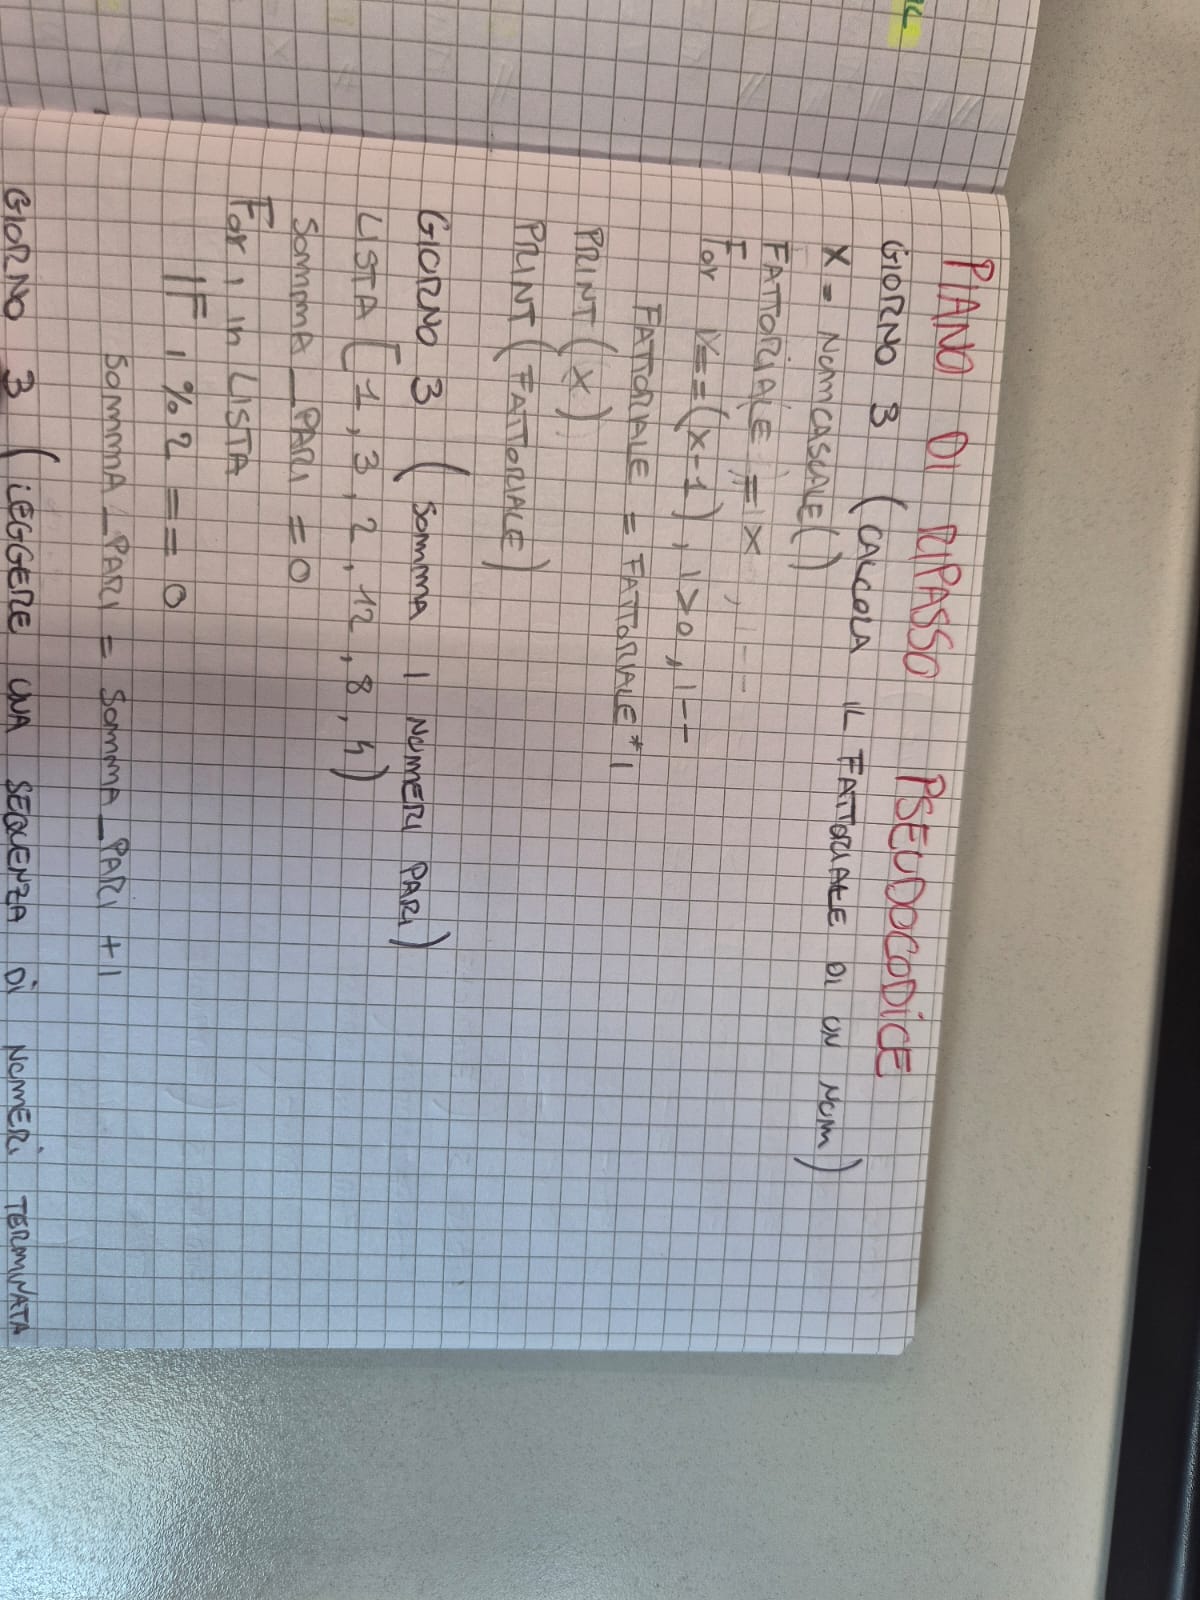 PIANO DI RIPASSO PSEUDOCODICE
GIORNO 3 (CALCOLA IL FATTORIALE DI UN NUM)
X = NUMCASUALE()
FATTORIALE = X
For I==(X-1), I>0, I--
FATTORIALE = FATTORIALE*I
PRINT (X)
PRINT (FATTORIALE)
GIORNO 3 (SOMMA I NUMERI PARI)
LISTA [1,3,2,12,8,4)
SOMMA_PARI = 0
For I in LISTA
IF I%2 == 0
SOMMA_PARI = SOMMA_PARI + I
GIORNO 3 (LEGGERE UNA SEQUENZA DI NUMERI TERMINATA